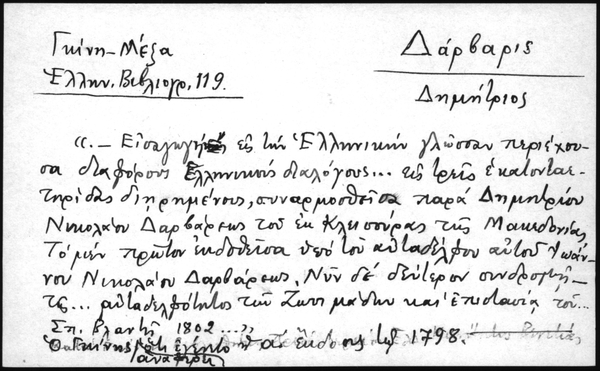 Γκίνη-Μέξα
Ἑλλην. Βιβλιογρ. 119.
Δάρβαρις
Δημήτριος
«.- Εἰσαγωγὴ εἰς τὴν Ἑλληνικὴν γλῶσσαν περιέχου-
σα διαφόρους Ἑλληνικοὺς διαλόγους... εἰς τρεῖς ἑκατονταε-
τηρίδας διῃρημένους, συναρμοσθεῖσα παρὰ Δημητρίου
Νικολάου Δαρβάρεως τοῦ ἐκ Κλεισούρας τῆς Μακεδονίας,
Τὸ μὲν πρῶτον ἐκδοθεῖσα ὑπὸ τοῦ αὐταδέλφου αὐτοῦ Ἰωάν-
νου Νικολάου Δαρβάρεως, Νῦν δὲ δεύτερον συνδρομῇ-
τῆς... αὐταδελφότητος τῶν Ζωσιμάδων καὶ ἐπιστασίᾳ τοῦ...
Σπ. Βλαντῆ 1802...»
Ὁ Γκίνης ὅτι ἐγένετο ἔκδοσις τῷ 1798.
ἀναφέρει